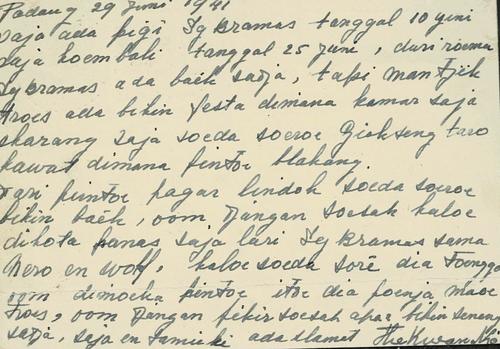 Padang 29 Juni 1941
saja ada pigi Sykramas tanggal 10 yuni
saja koembali tanggal 25 juni, dari roema
Sykramas ada baik sadja, tapi man Tjik
troes ada bikin festa dimana kamar saja
skarang saja soeda soeroe Giokseng taro
kawat dimana pintoe blakang.
dari pintoe pagar lindoh soeda soeroe
bikin baik, oom djangan soesah kaloe
dikota panas saja lari Sykramas sama
Nero en Wolf, kaloe soeda sorē dia toenggoe
oom dimoeka pintoe itoe dia poenja maoe
troes, oom djangan fikir soesah apa2 bikin senang
sadja, saja en famieki ada slamet